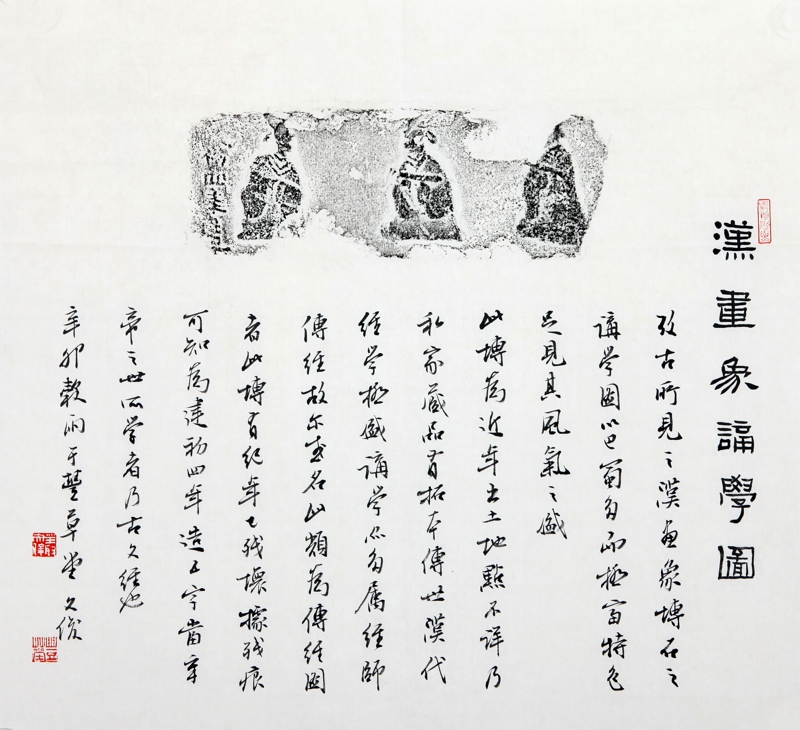 漢畫象講學圖
考古所見之漢畫象塼石之
講學圖以巴蜀多而極富特色
足見其風氣之盛
此塼為近年出土地點不詳乃
私家藏品有拓本傳世漢代
經學極盛講學亦多屬經師
傳經故亦名此類為傳經圖
者此塼有紀年已殘壞據殘痕
可知為建初四年造五字當章
帝之世所學者乃古文經也
辛卯穀雨于豐草堂文俊